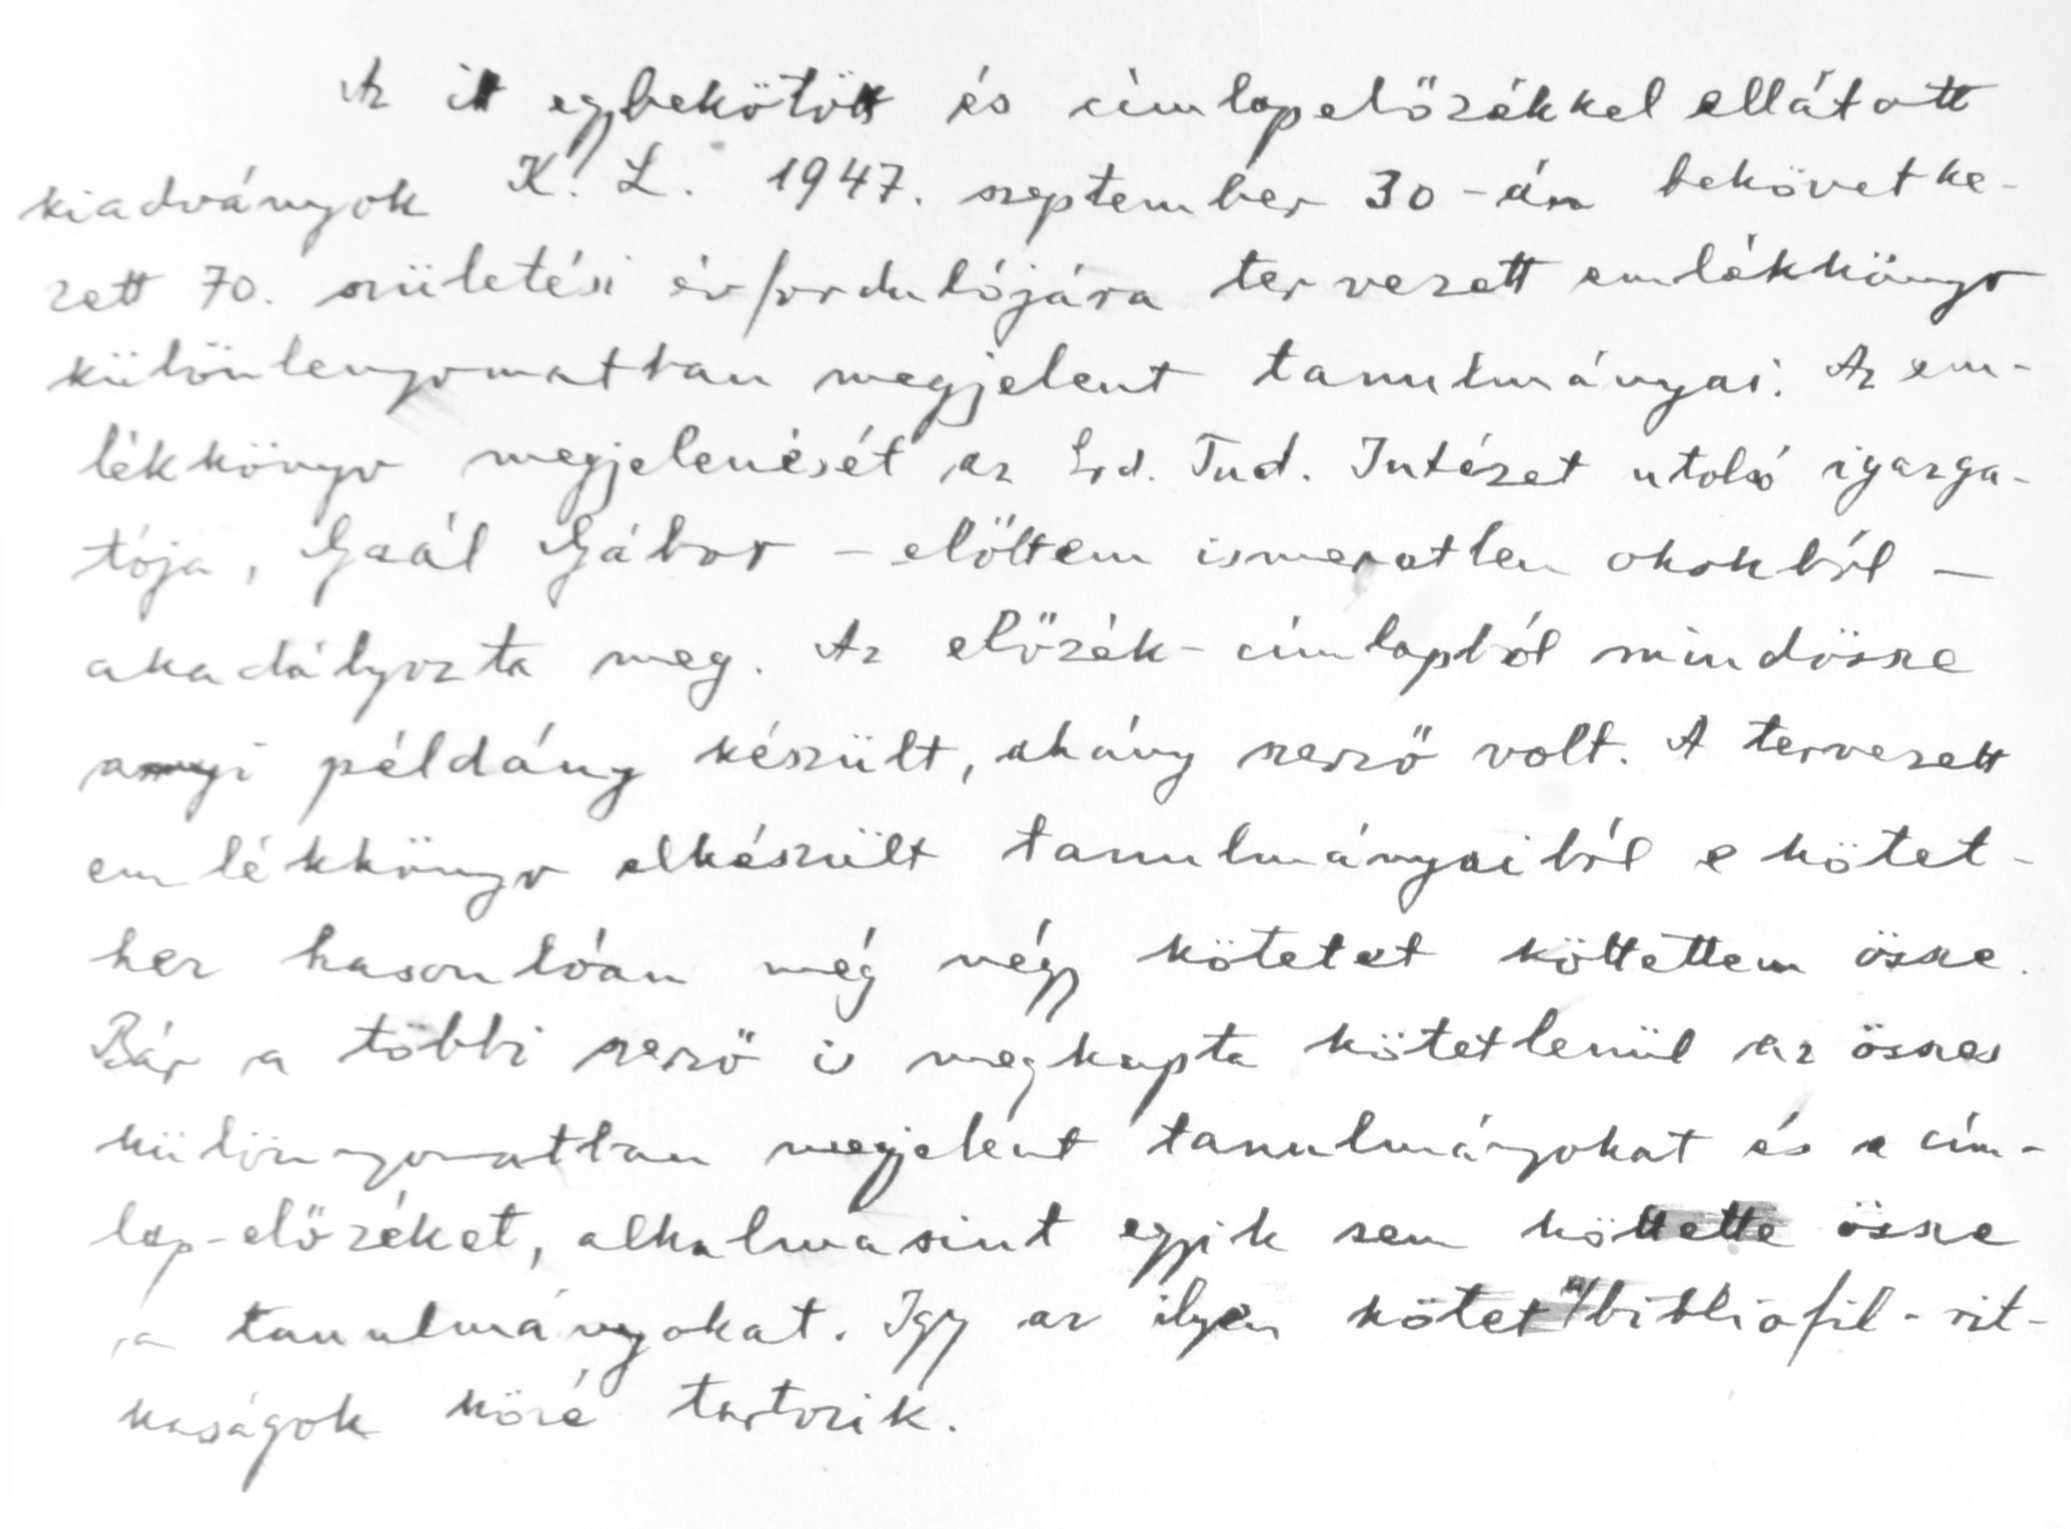 Az itt egybekötött és címlapelőzékkel ellátott
kiadványok K. L. 1947. szeptember 30-án bekövetke-
zett 70. születési évfordulójára tervezett emlékkönyv
különlenyomatban megjelent tanulmányai. Az em-
lékkönyv megjelenését az Erd. Tud. Intézet utolsó igazga-
tója, Gaál Gábor – előttem ismeretlen okokból –
akadályozta meg. Az előzék-címlapból mindössze
annyi példány készült, ahány szerző volt. A tervezett
emlékkönyv elkészült tanulmányaiból e kötet-
hez hasonlóan még négy kötetet köttettem össze.
Bár a többi szerző is megkapta kötetlenül az összes
különnyomatban megjelent tanulmányokat és a cím-
lap-előzéket, alkalmasint egyik sem köttette össze
a tanulmányokat. Igy az ilyen kötet a bibliofil-rit-
kaságok közé tartozik.